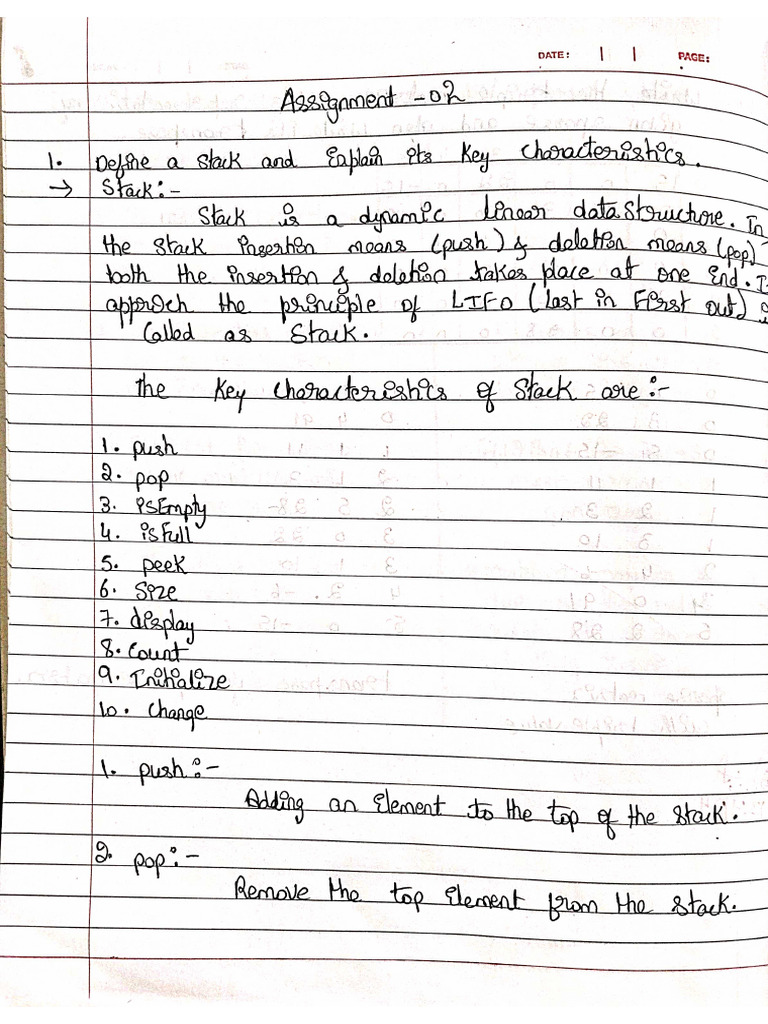 DATE: | | PAGE:
Assignment - 02
1. Define a stack and Explain its Key characteristics.
→ Stack :-
Stack is a dynamic linear data structure. In
the stack insertion means (push) & deletion means (pop)
both the insertion & deletion takes place at one end.
approch the principle of LIFO (Last in First out)
Called as Stack.
The Key characteristics of Stack are :-
1. push
2. pop
3. isEmpty
4. isfull
5. peek
6. Size
7. display
8. Count
9. Initialize
10. Change
1. push :-
Adding an Element to the top of the stack.
2. pop :-
Remove the top Element from the stack.